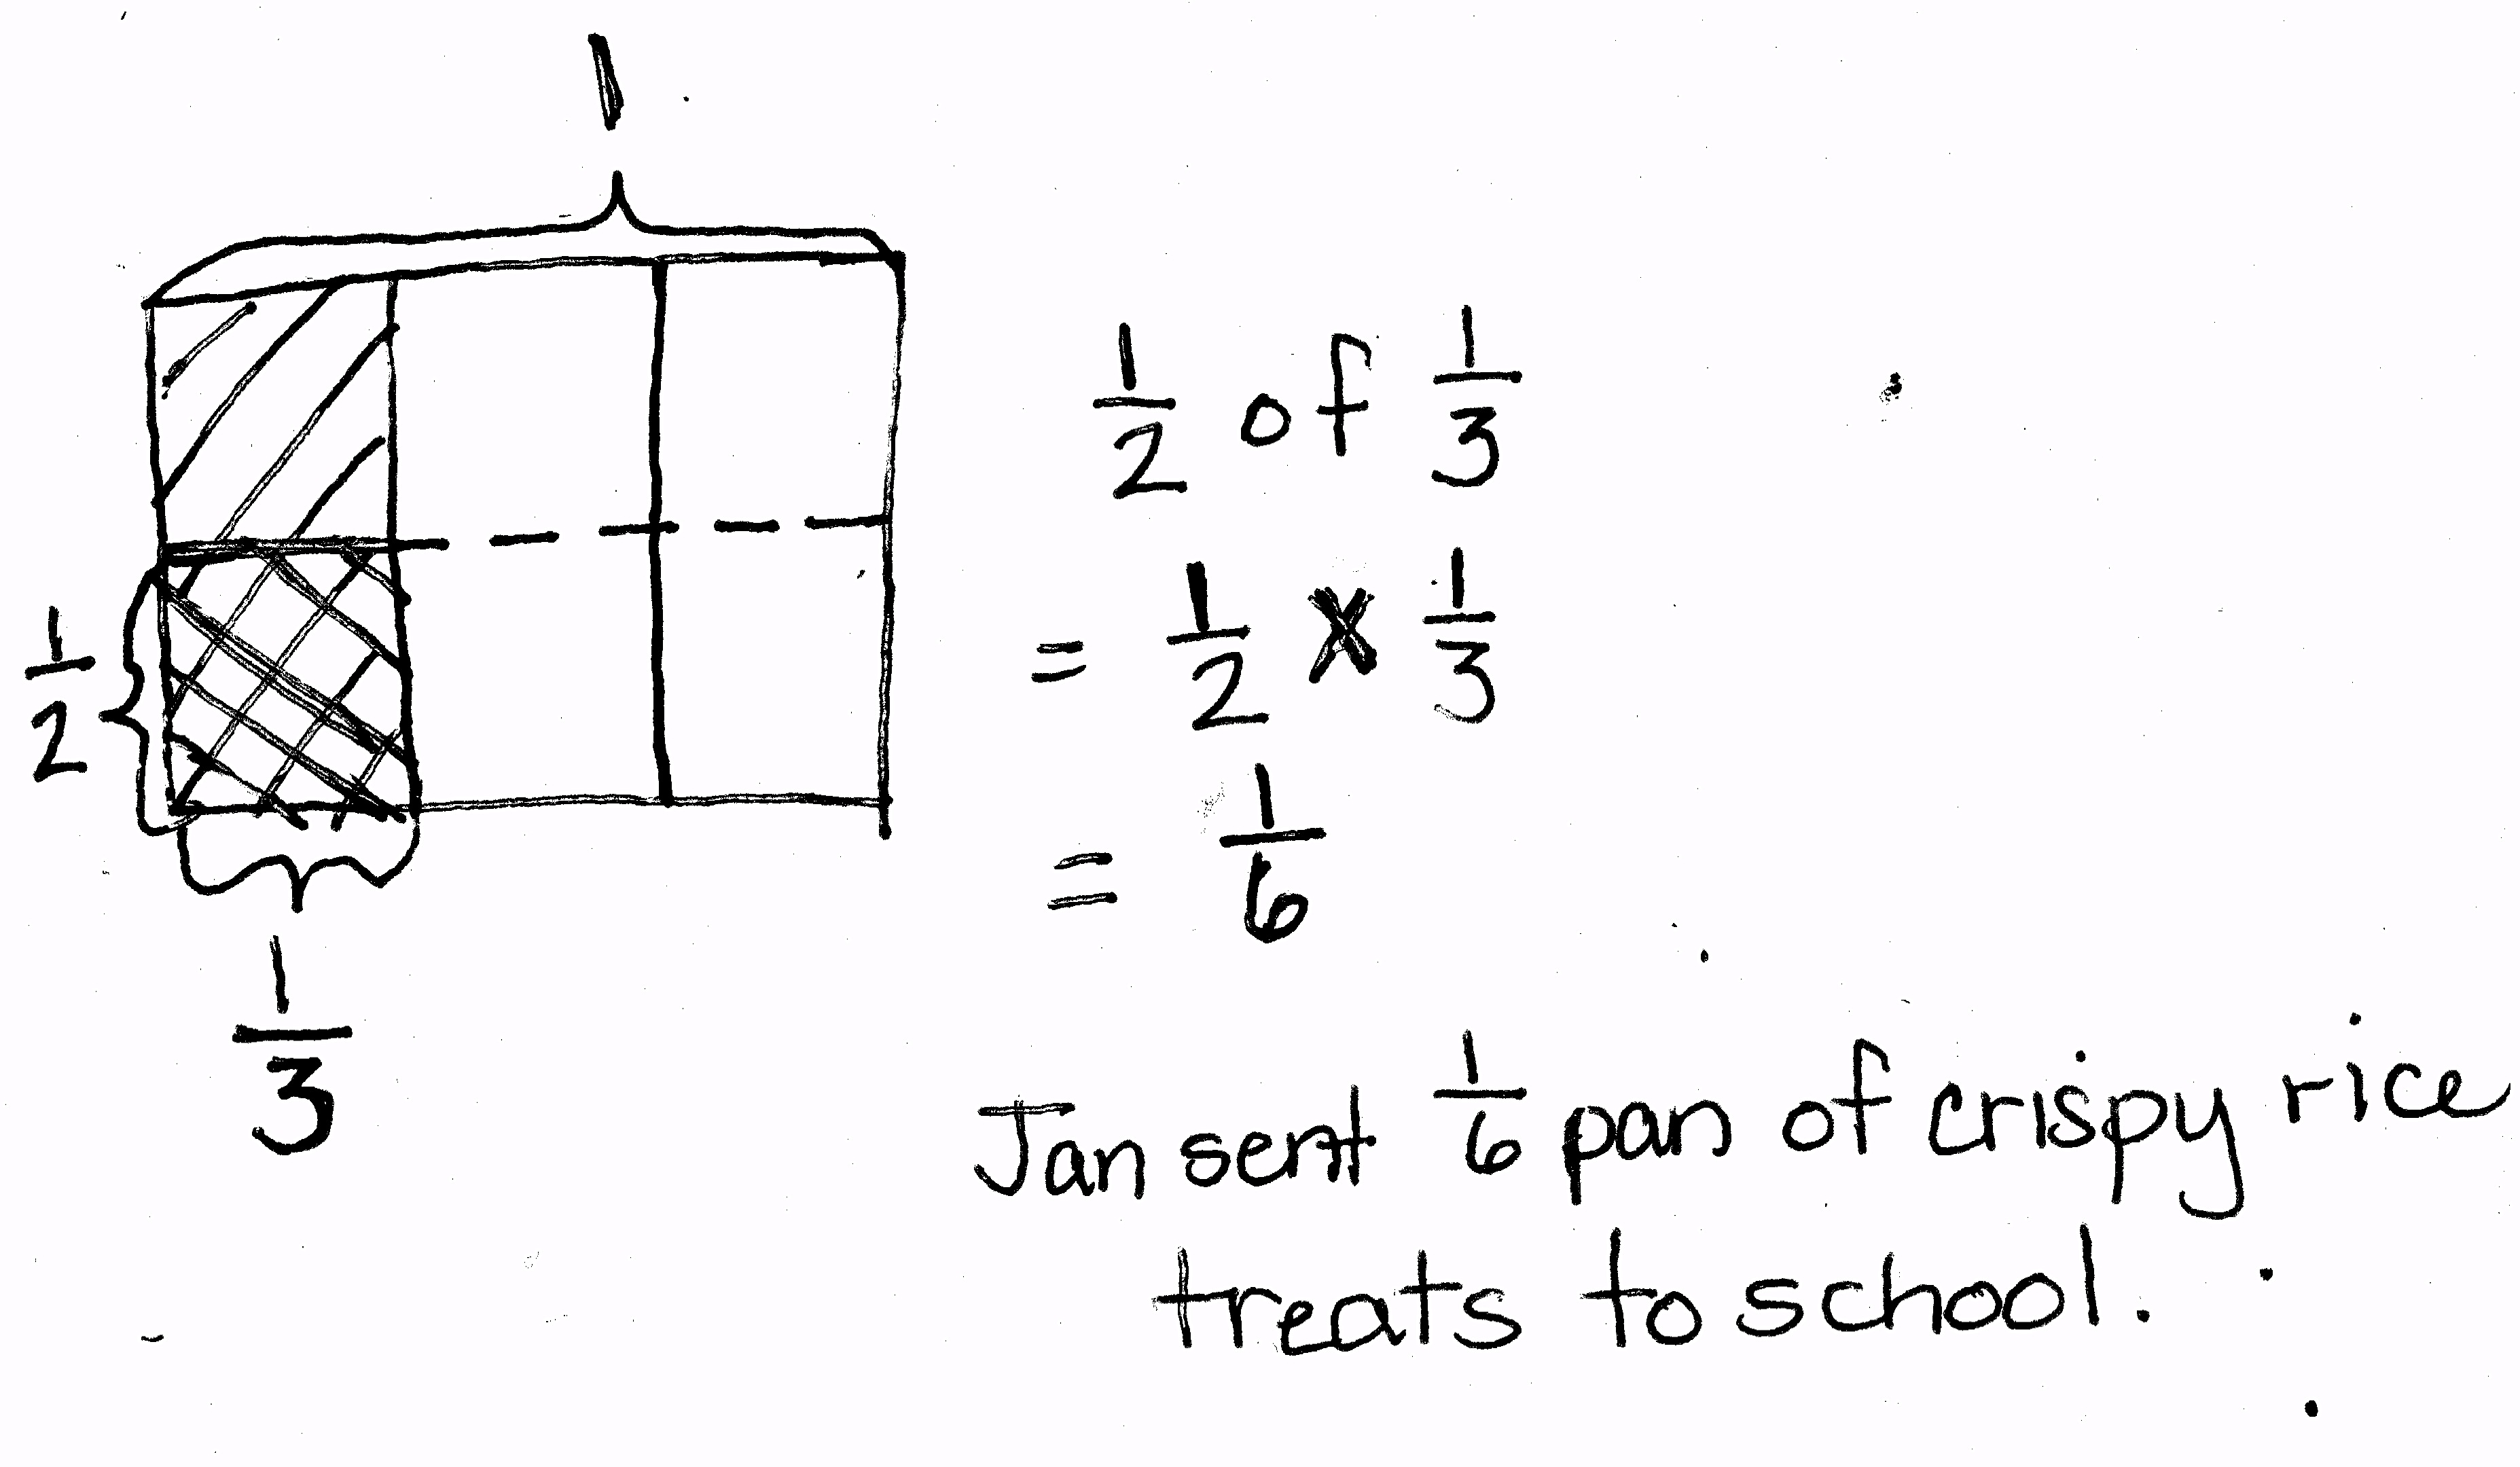 1
1/2
1/3
1/2 of 1/3
= 1/2 × 1/3
= 1/6
Jan sent 1/6 pan of crispy rice
treats to school.